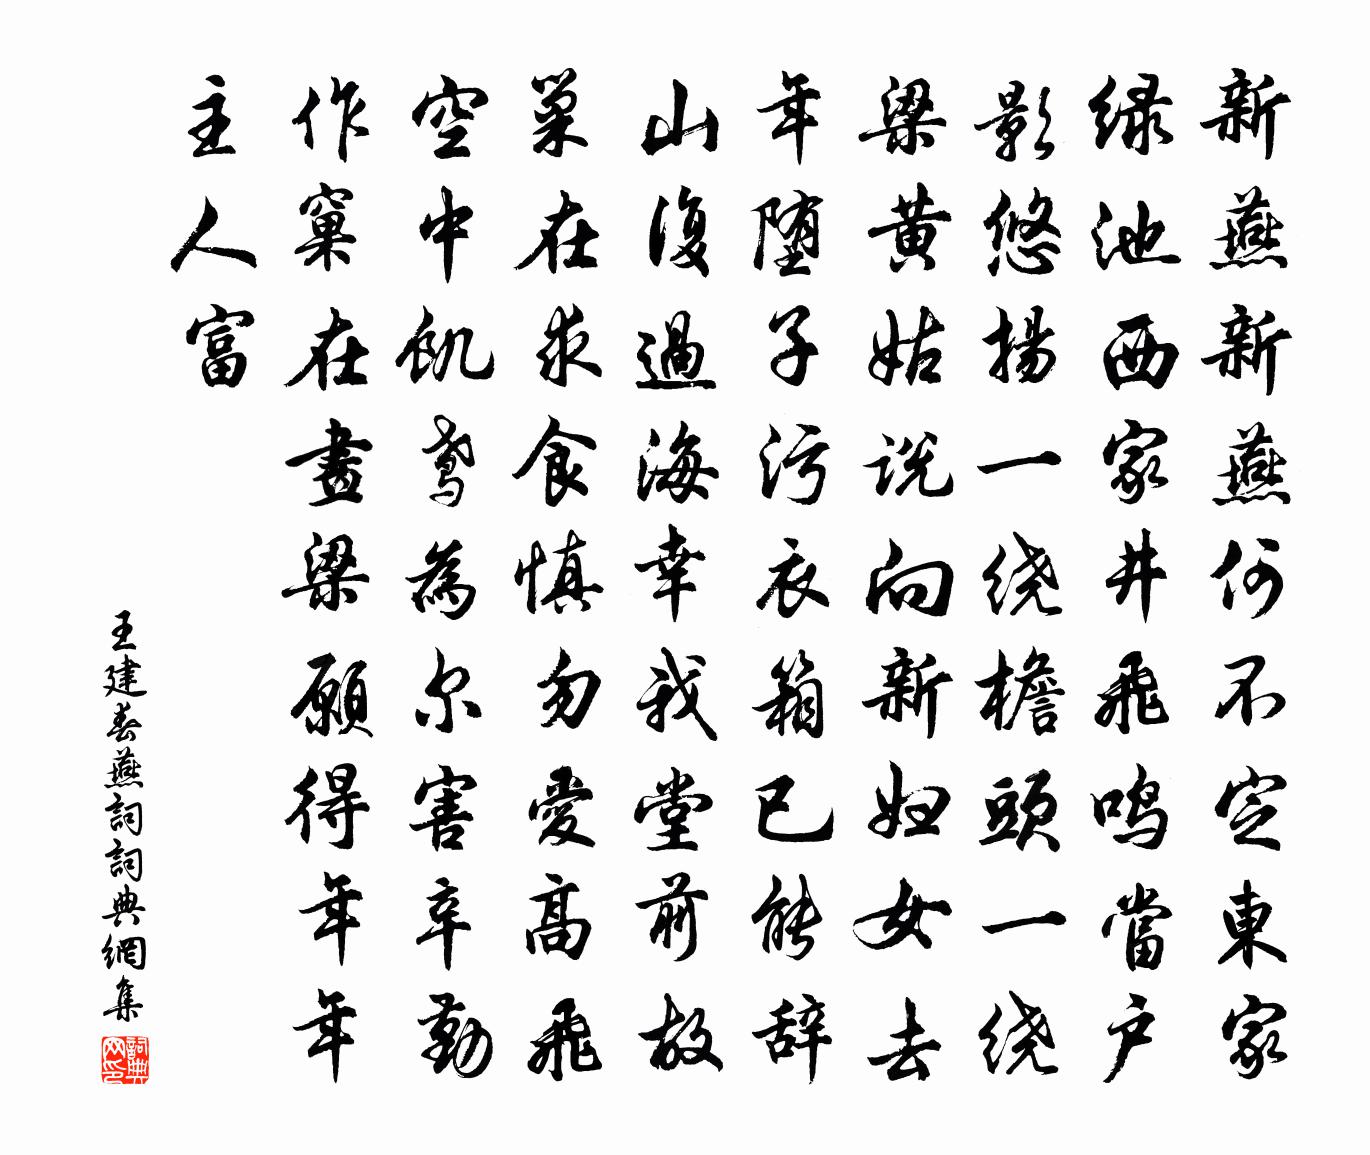 新燕新燕何不定東家
绿池西家井飛鳴當户
影悠揚一绕檐頭一绕
梁黄姑说向新妇女去
年堕子污衣箱已能辞
山復過海幸我堂前故
巢在求食慎勿愛高飛
空中飢鸢為尔害辛勤
作窠在畫梁願得年年
主人富
王建春燕詞詞典網集
詞典网印